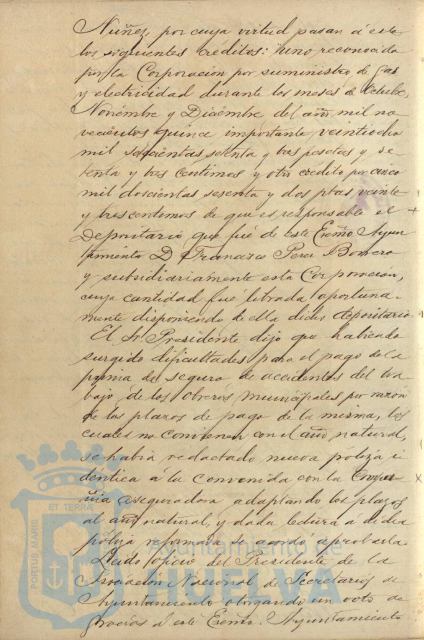 Nuñez, por cuya virtud pasan á este
los siguientes créditos: uno reconocido
por la Corporacion por suministro de gas
y electricidad durante los meses de Octubre,
Noviembre y Diciembre del año mil no
vecientos quince importante veintiocho
mil seiscientas setenta y tres pesetas y se
tenta y tres centimos y otro credito por cinco
mil doscientas sesenta y dos ptas veinte
y tres centimos de que es responsable el
Depositario que fué de este Excmo Ayun
tamiento D. Francisco Perez Romero
y subsidiariamente esta Corporacion,
cuya cantidad fué librada oportuna-
mente disponiendo de ella dicho depositario
El Sr. Presidente dijo que habiendo
surgido dificultades para el pago de la
prima del seguro de accidentes del tra
bajo de los obreros municipales por razon
de los plazos de pago de la misma, los
cuales no convienen con el año natural,
se habia redactado nueva poliza i
dentica á la convenida con la Compa
ñia aseguradora adaptando los plazos
al año natural, y dada lectura á dicha
poliza reformada se acordó aprobarla
Leido oficio del Presidente de la
Asociacion Nacional de Secretarios de
Ayuntamiento otorgando un voto de
gracias á este Excmo. Ayuntamiento
PORTUS MARIS ET TERRAE
Ayuntamiento de
HUELVA